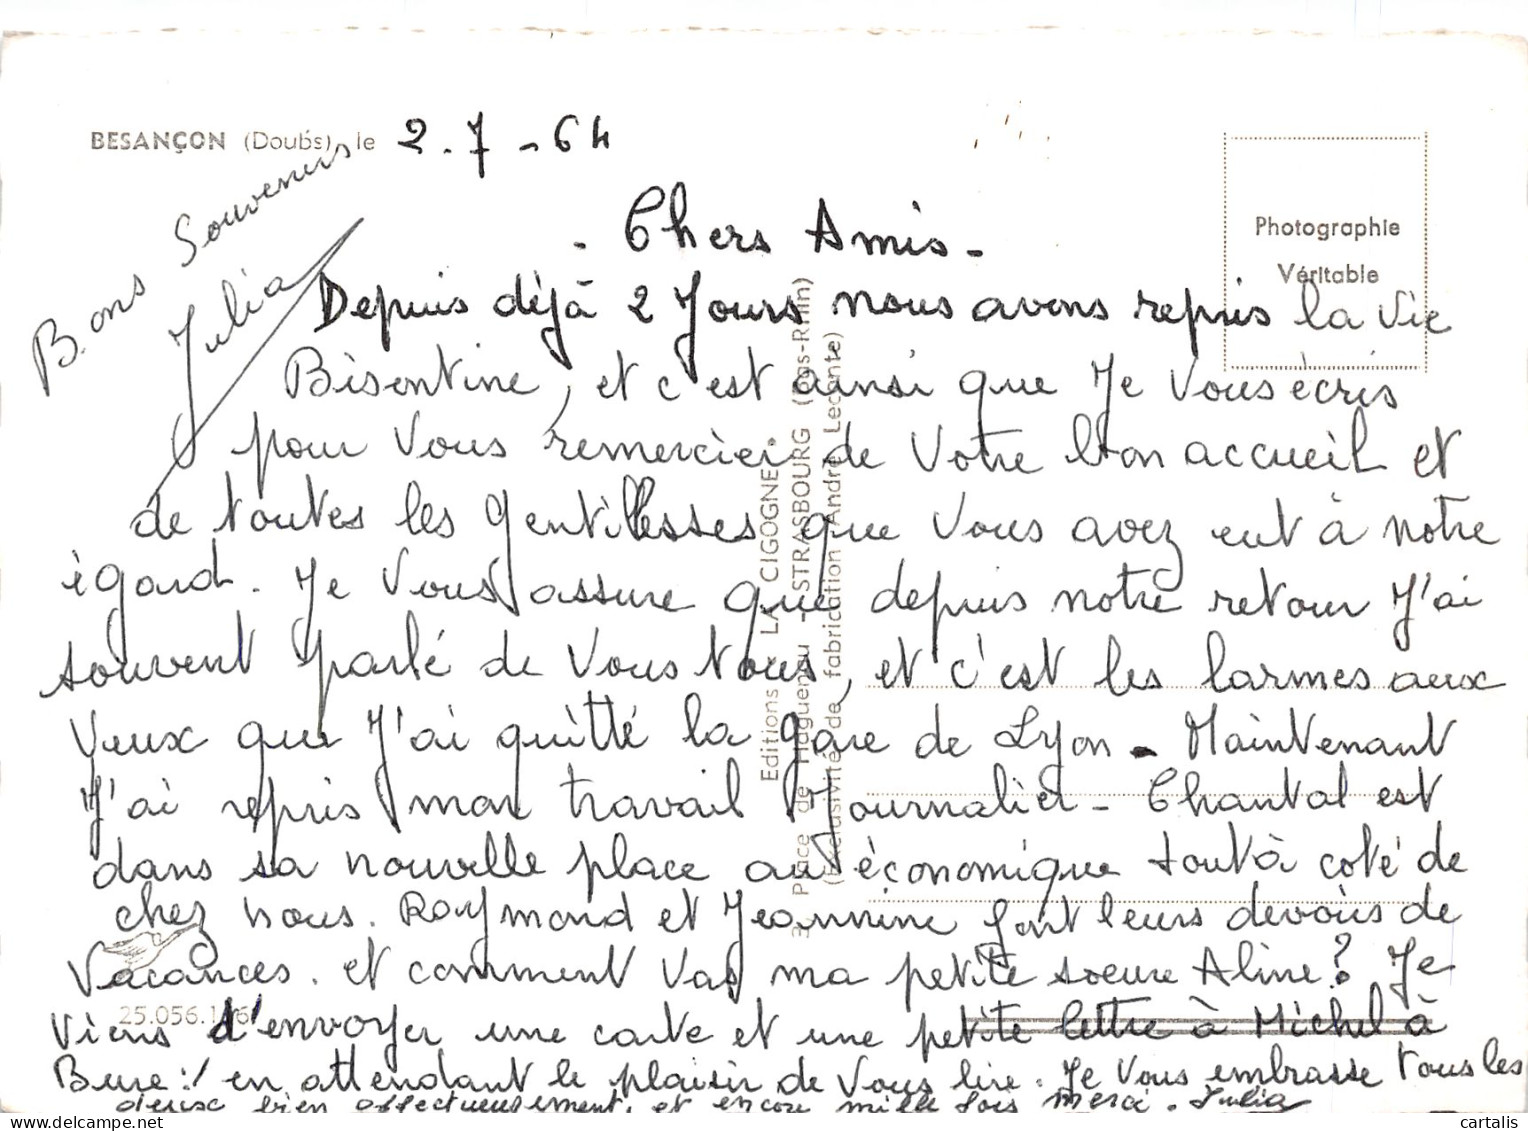 BESANÇON (Doubs), le 2.7-64
Bons Souvenirs
Julia
Photographie
Véritable
- Chers Amis -
Depuis déjà 2 Jours nous avons repris la vie
Bisontine, et c'est ainsi que Je vous écris
pour vous remercier de votre bon accueil et
de toutes les gentillesses que vous avez eut à notre
égard. Je vous assure que depuis notre retour J'ai
souvent parlé de vous tous, et c'est les larmes aux
yeux que J'ai quitté la gare de Lyon - Maintenant
J'ai repris mon travail Journalier - Chantal est
dans sa nouvelle place au économique tout à coté de
chez nous. Raymond et Jeannine font leurs devoirs de
vacances. et comment vas ma petite soeure Aline? Je
viens d'envoyer une carte et une petite lettre à Michel à
Bure:! en attendant le plaisir de vous lire. Je vous embrasse tous les
deux bien affectueusement, et encore mille fois merci. Julia
Editions "LA CIGOGNE"
3, Place de Haguenau - STRASBOURG (Bas-Rhin)
(Exclusivité de fabrication André Leconte)
25.056.
cartalis